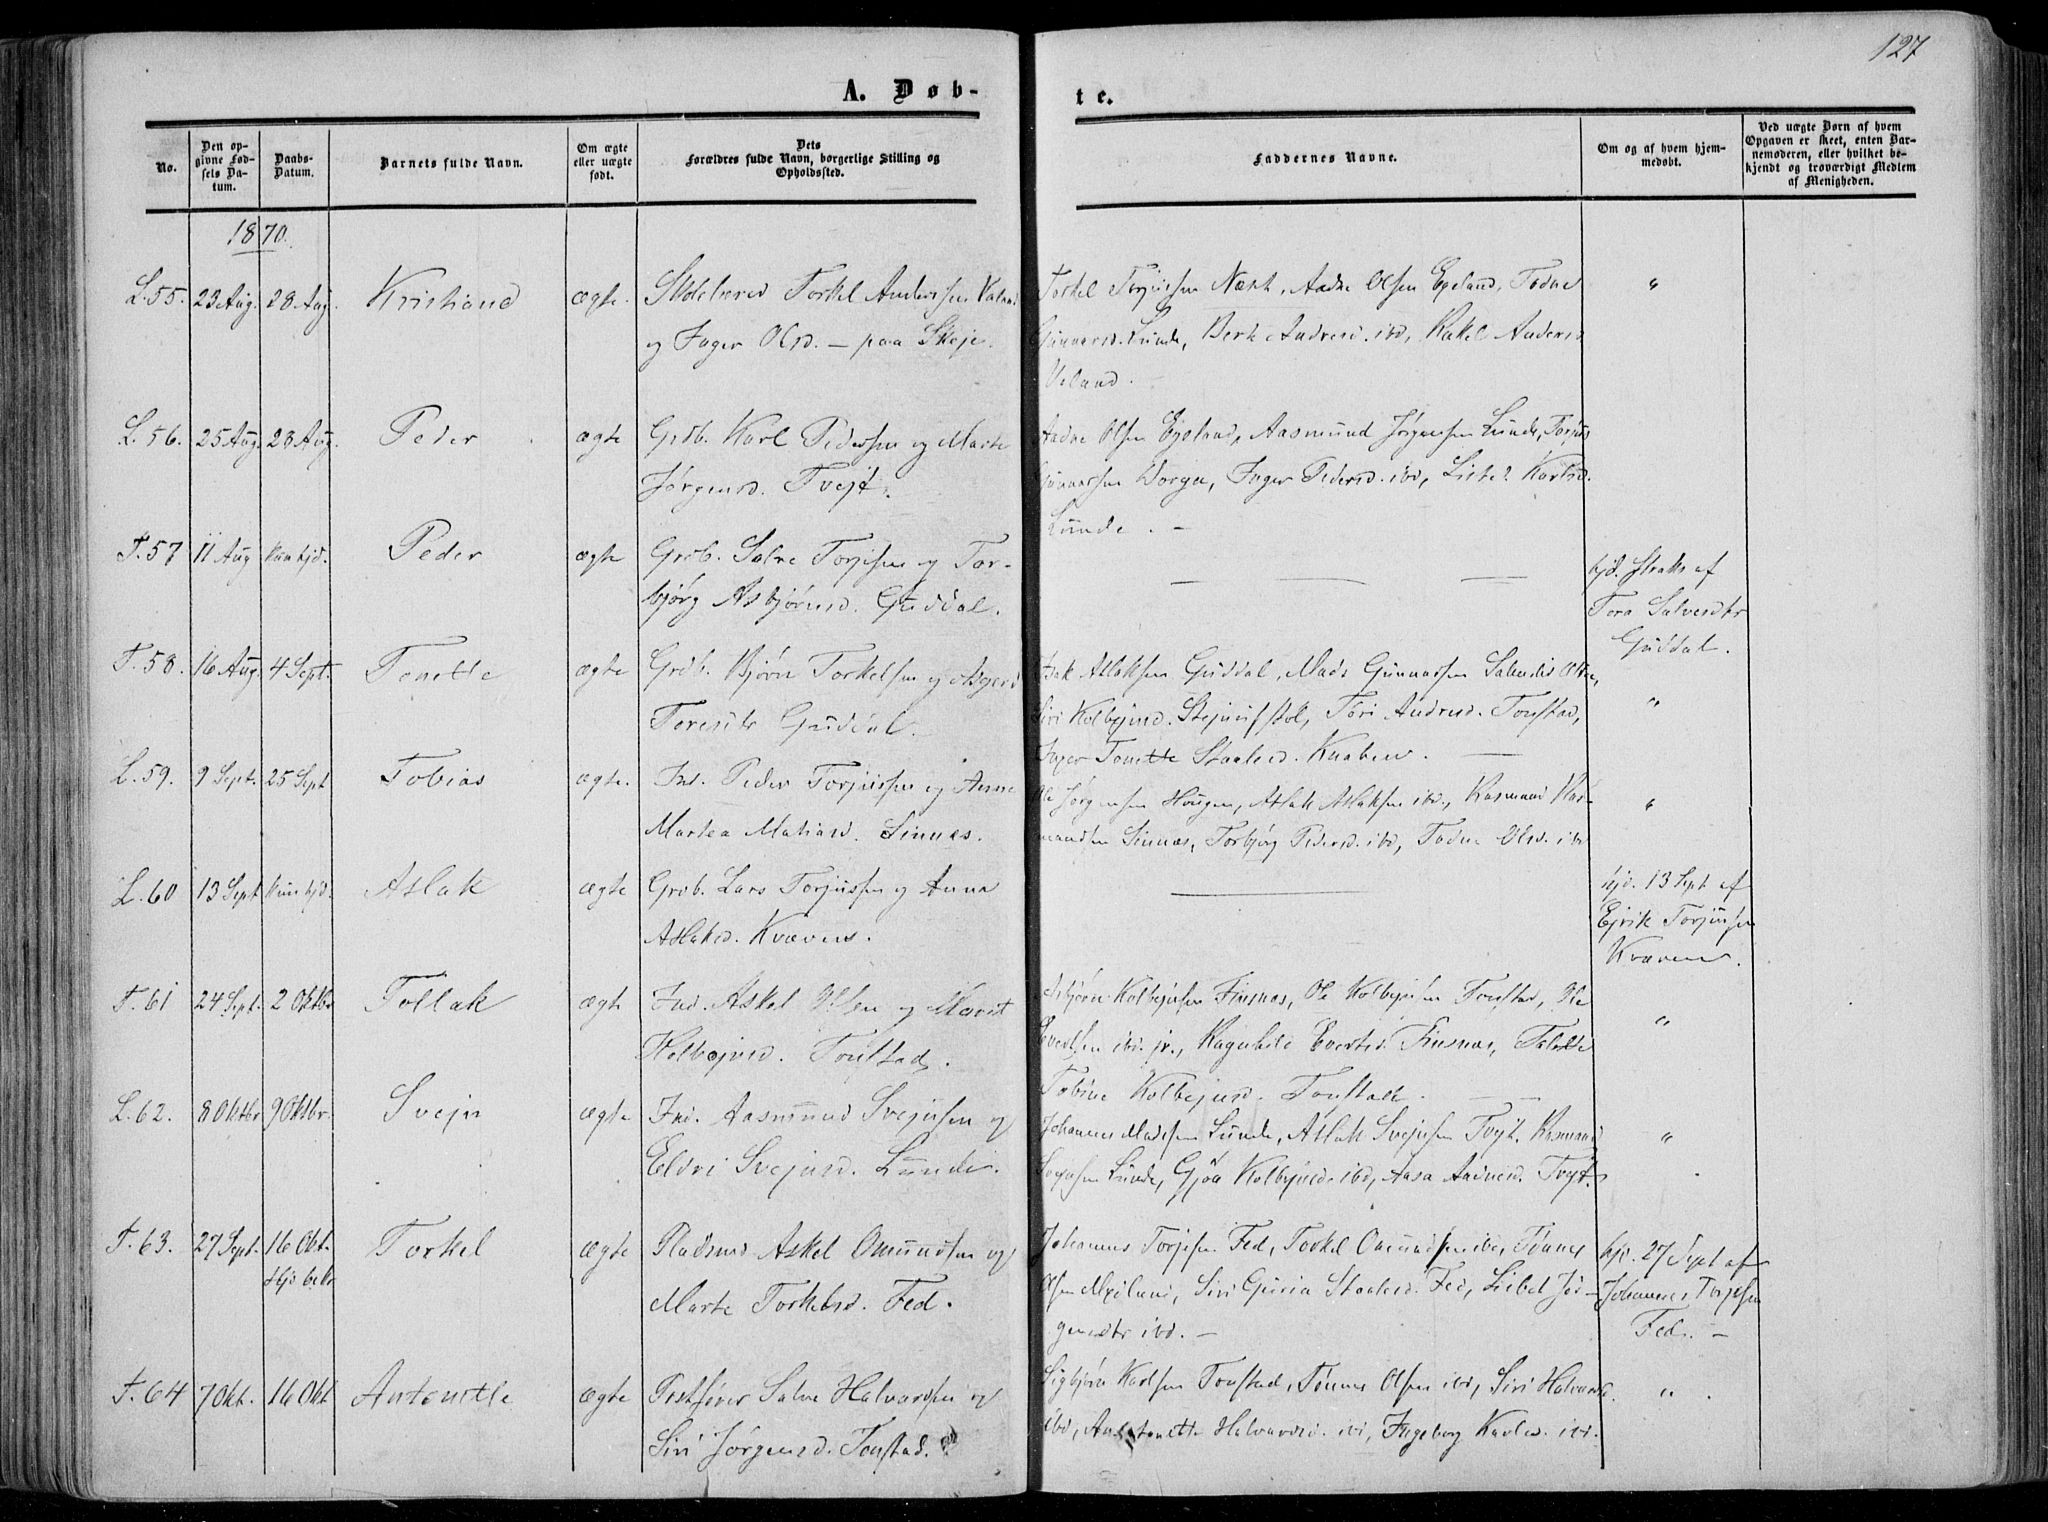 127
A. Døb-
te.
No.
Den op-
givne Fød-
sels Da-
tum.
Daabs-
Datum.
Barnets fulde Navn.
Om ægte
eller uægte
født.
Dets
Forældres fulde Navn, borgerlige Stilling og
Opholdssted.
Faddernes Navne.
Om og af hvem hjem-
medøbt.
Ved uægte Børn af hvem
Opgaven er skeet, enten Bar-
nemoderen, eller hvilket be-
kjendt og troværdigt Medlem
af Menigheden.
1870.
L. 55. 23 Aug. 28 Aug. Kristiane ægte. Torkel Anderssen
og Inger Olsd. – paa Skeje.
Torkel Torjussen Næsh, Aadne Olsen Egeland, Todne
Gunnarsd. Lunde, Berte Andresd. ibd, Rakel Andersd
Veland. "
L. 56. 25 Aug. 28 Aug. Peder ægte Grdb. Karl Pedersen og Marte
Jørgensd. Tvejt.
Aadne Olsen Egeland, Aasmund Jørgensen Lunde, Torjus
Gunnarsen Dorga, Inger Pedersd. ibd, Lisbet Karlsd.
Lunde. –
T. 57 11 Aug Kun hjd. Peder ægte Grdb. Salve Torjesen og Tor-
bjørg Asbjørnsd. Guddal.
— — —
hjd. straks af
Tora Salvesdtr
Guddal.
T. 58. 16 Aug. 4 Sept. Tonette ægte Grdb. Bjørn Torkelsen og
Guddal.
Isak Aslaksen Guddal, Mads Gunnarsen
Siri Kolbejnsd. Tori Andersd. Tonstad,
Inger Tonette Staalesd. Knaben. — "
L. 59. 9 Sept. 25 Sept Tobias ægte. Ind. Peder Torjussen og Anne
Martea Matiasd. Sinnes.
Ole Jørgensen Hougen, Aslak Aslaksen ibd, Rasmund Ras-
mundsen Sinnes, Torbjørg Pedersd. ibd, Todne Olsd. ibd "
L. 60 13 Sept Kun hjd. Aslak ægte Grdb. Lars Torjussen og Anna
Aslaksd. Kvæven.
—
hjd. 13 Sept af
Ejrik Torjussen
Kvæven.
T. 61 24 Sept. 2 Oktbr Tollak ægte Ind. Askel Olsen og Marit
Kolbejnsd. Tonstad.
Asbjørn Kolbejnsen Finsnes, Ole Kolbejnsen Tonstad, Ole
Evertsen ibd. jr., Ragnhild Evertsd. Finsnes,
Tobine Kolbejnsd. Tonstad. — — "
L. 62. 8 Oktbr 9 Oktbr. Svejn ægte Ind. Aasmund Svejnsen og
Eldri Svejnsd. Lunde.
Johannes Madssen Lunde, Aslak Svejnsen Tvejt, Rasmund
Svejnsen Lunde, Gjøa Kolbejnsd. ibd, Aasa Aadnesd. Tvejt. "
T. 63. 27 Sept. 16 Okt. Torkel ægte Pladsmd Askel Omundsen og
Marte Torkelsd. Fed.
Johannes Torjesen Fed, Torkel Omundsen ibd, Tønnes
Olsen Mejland, Siri Guria Staalesd. Fed, Lisbet Jør-
gensdtr ibd. –
hjd. 27 Sept af
Johannes Torjesen
Fed. –
T. 64 7 Okt. 16 Okt Antonette ægte Salve Halvardsen og
Siri Jørgensd. Tonstad.
Sigbjørn Karlsen Tonstad, Tønnes Olsen ibd, Siri Halvardsd.
ibd, Antonette Halvardsd. ibd, Ingeborg Karlsd. ibd. "